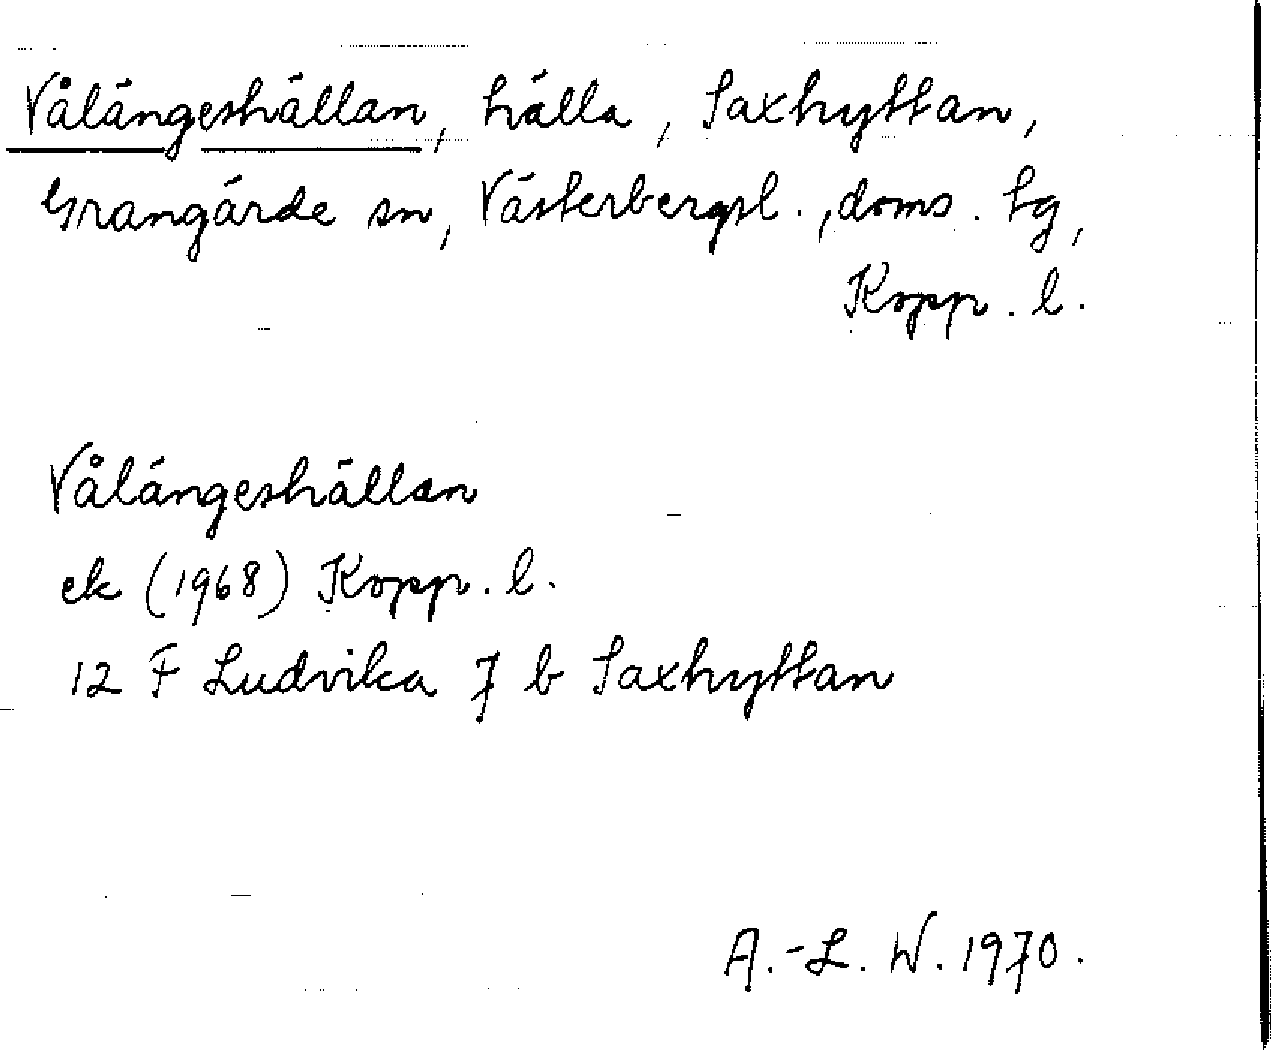 Vålängeshällan, hälla, Saxhyttan,
Grangärde sn, Västerbergsl., doms. tg,
Kopp. l.
Vålängeshällan
ek (1968) Kopp. l.
12 F Ludvika 7 b Saxhyttan
A.-L. W. 1970.